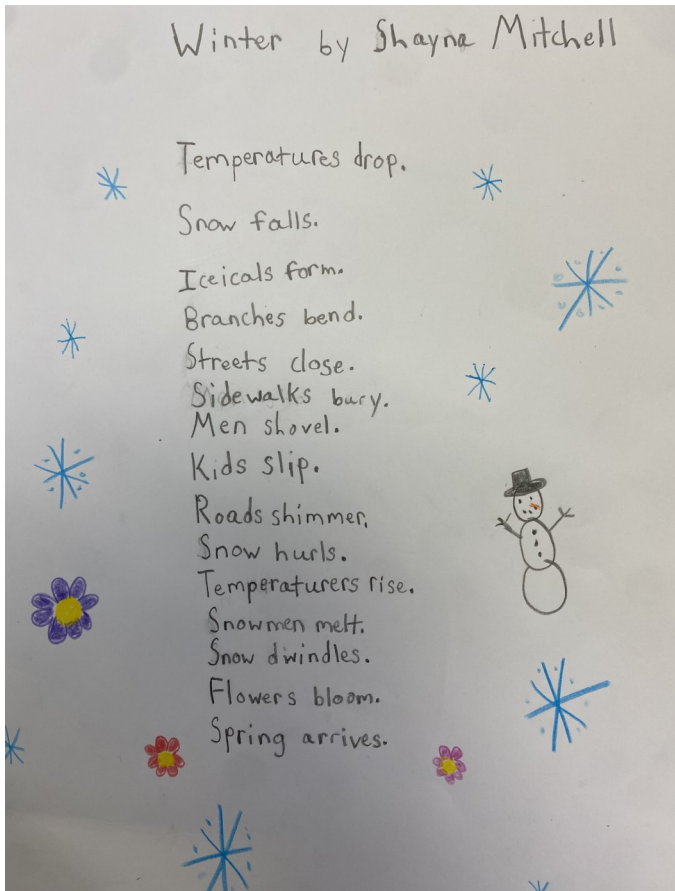 Winter by Shayna Mitchell
Temperatures drop.
Snow falls.
Iceicals form.
Branches bend.
Streets close.
Sidewalks bury.
Men shovel.
Kids slip.
Roads shimmer.
Snow hurls.
Temperaturers rise.
Snowmen melt.
Snow dwindles.
Flowers bloom.
Spring arrives.